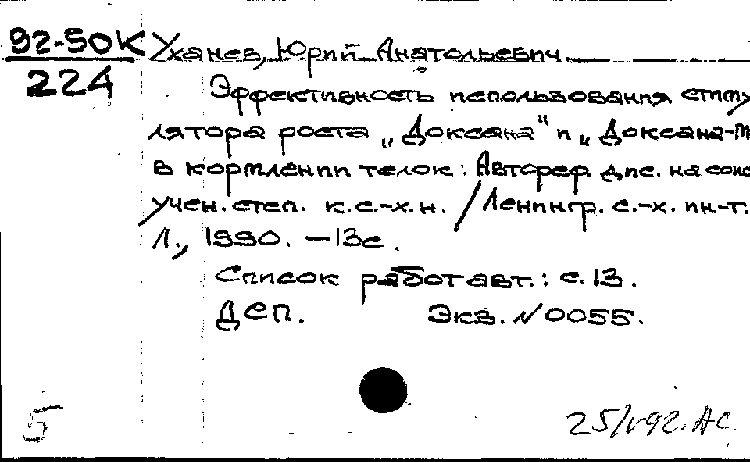 92-50К
224
Уханев, Юрий Анатольевич.
Эффективность использования стиму
лятора роста „Доксана" и „Доксана-М
в кормлении телок: Автореф. дис. на соис
учен. степ. к.с.-х.н. / Ленингр. с.-х. ин-т.
Л., 1990. -13с.
Список работ авт.: с.13.
ДСП. Экз. №0055.
5 25/V-92. АС.